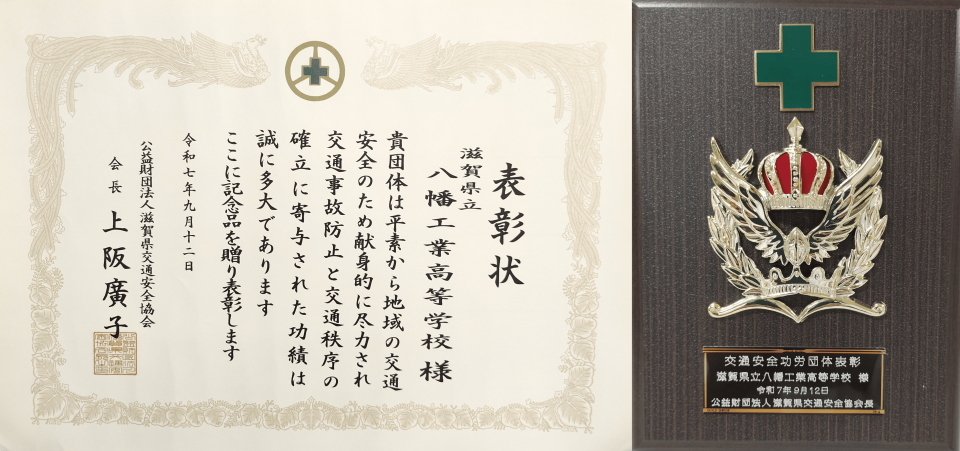 表彰状
滋賀県立
八幡工業高等学校 様
貴団体は平素から地域の交通
安全のため献身的に尽力され
交通事故防止と交通秩序の
確立に寄与された功績は
誠に多大であります
ここに記念品を贈り表彰します
令和七年九月十二日
公益財団法人 滋賀県交通安全協会
会長 上阪廣子
交通安全功労団体表彰
滋賀県立八幡工業高等学校 様
令和7年9月12日
公益財団法人滋賀県交通安全協会長